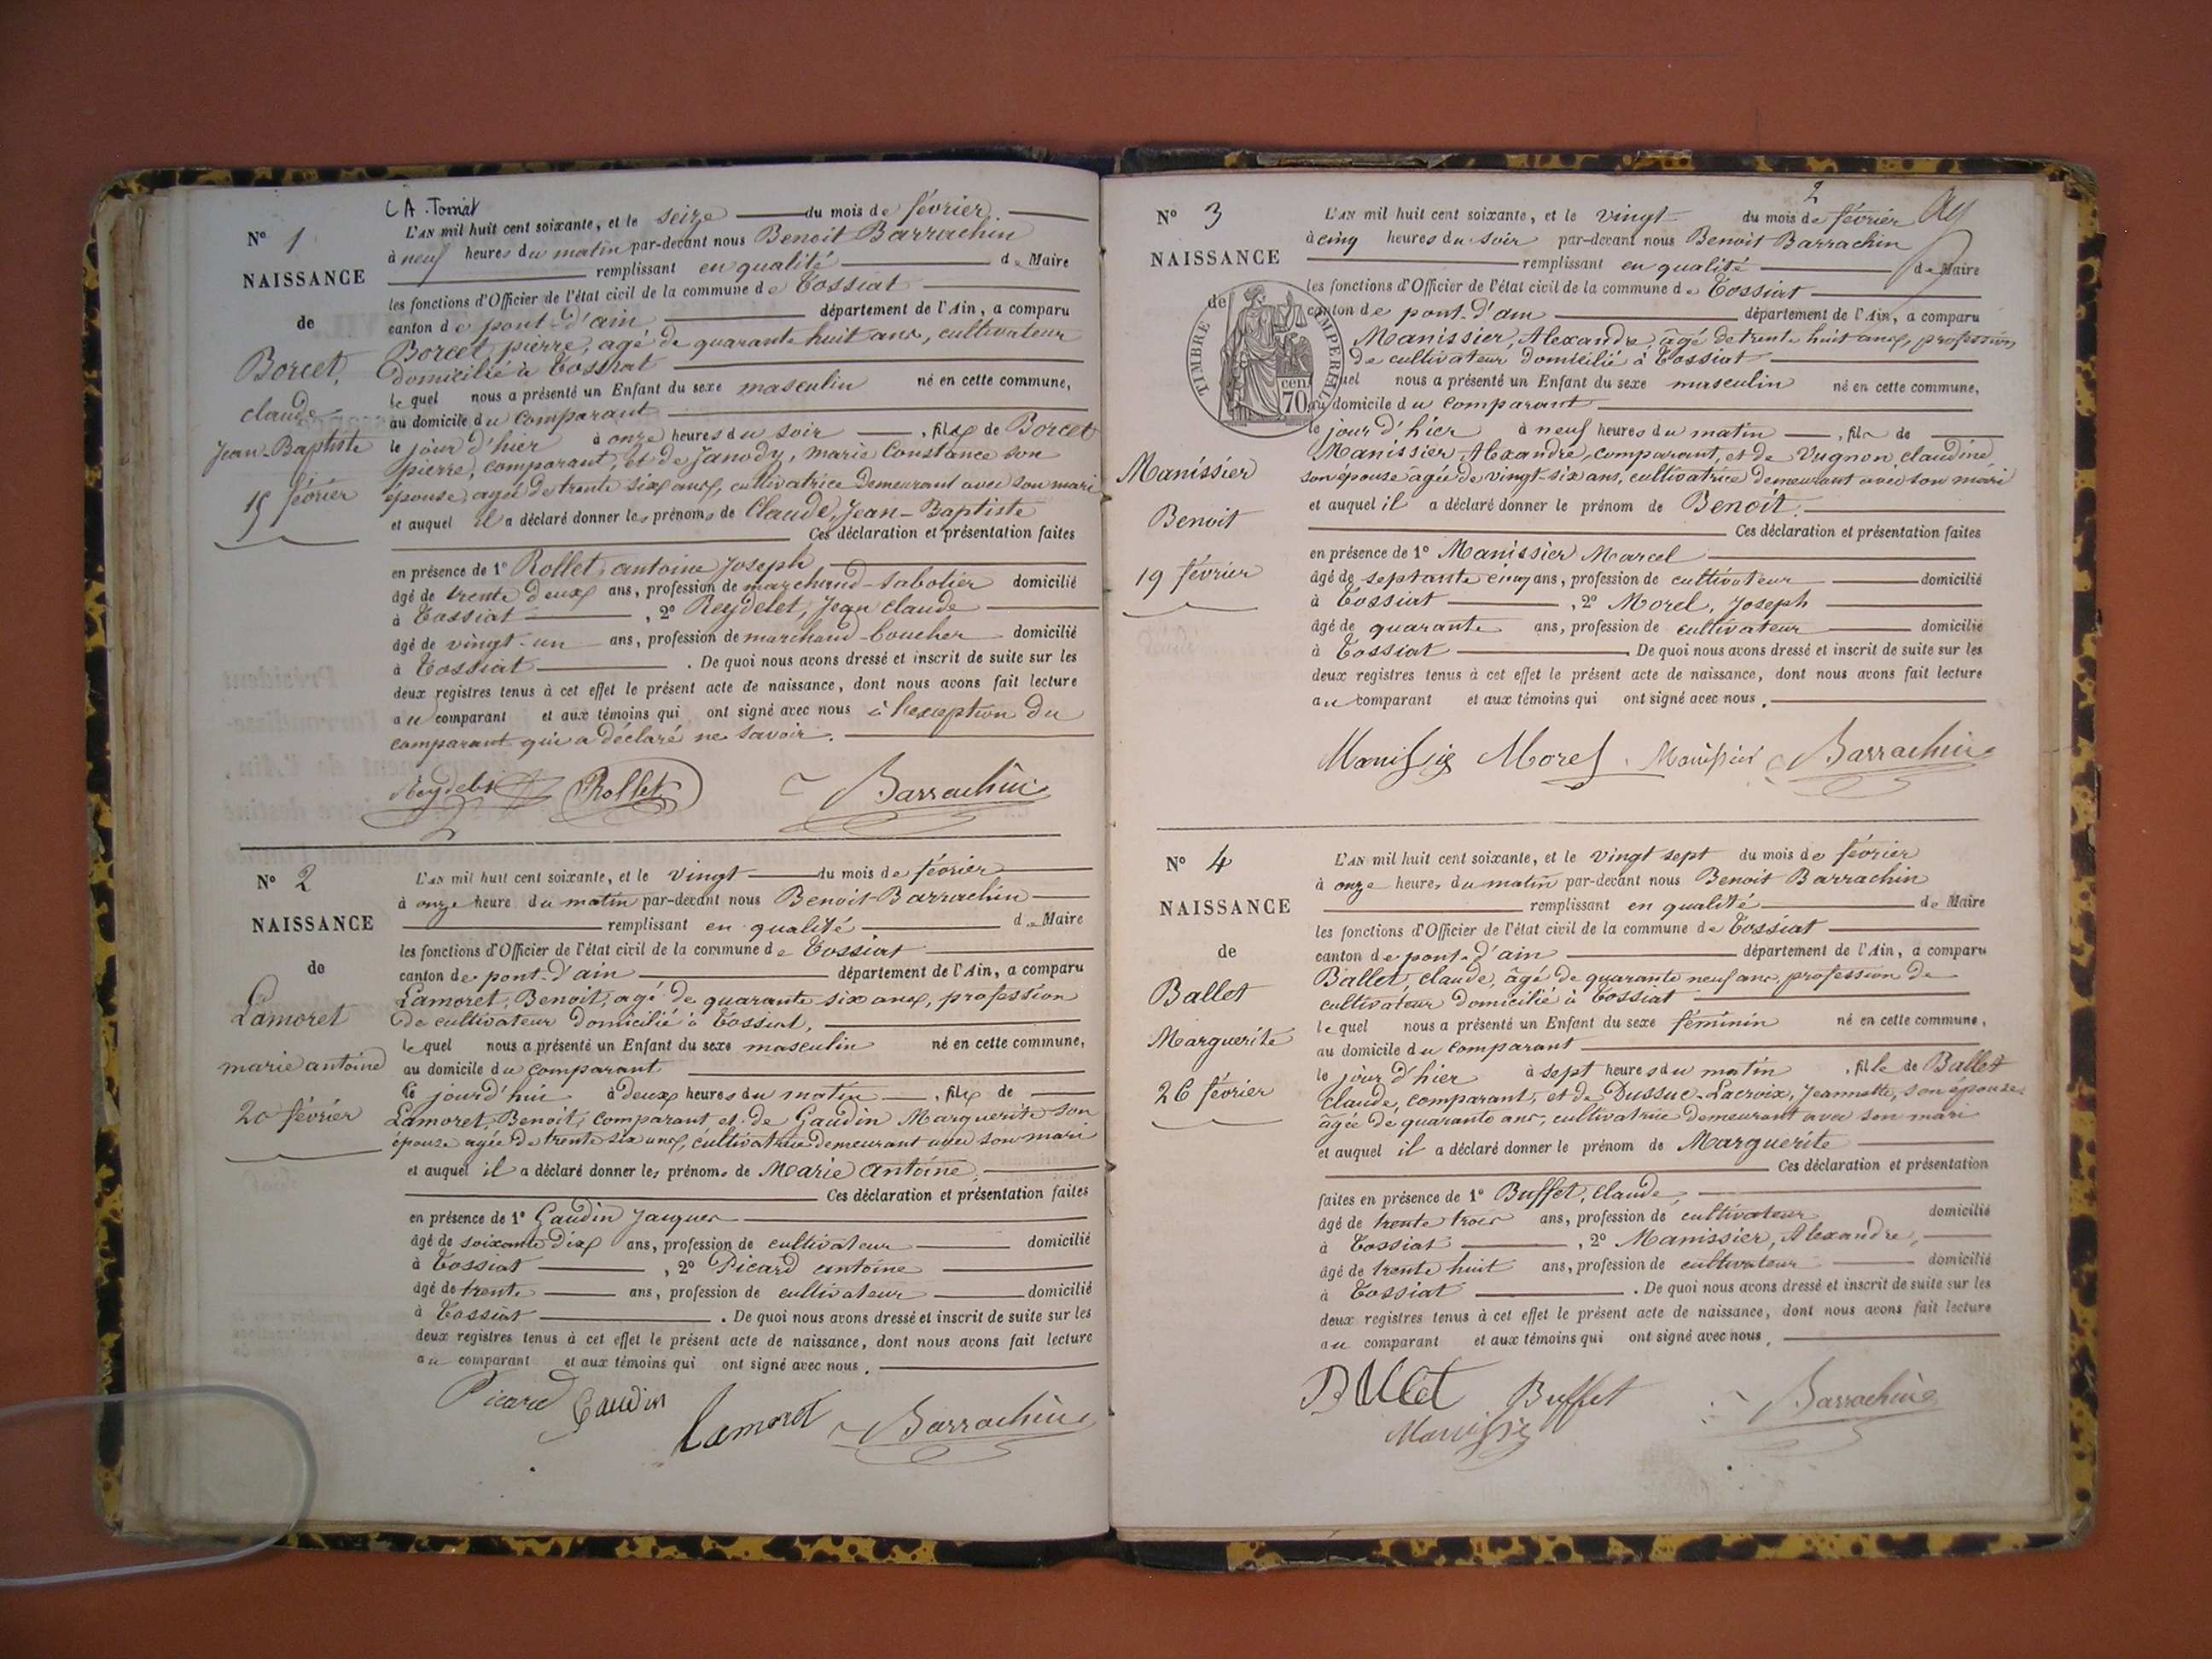 CA. Torniat
L'AN mil huit cent soixante, et le seize du mois de février
N° 1
à neuf heures du matin par-devant nous Benoit Barrachin
NAISSANCE
remplissant en qualité de Maire
les fonctions d'Officier de l'état civil de la commune de Tossiat
de
canton de pont-d'ain département de l'Ain, a comparu
Borcet pierre, agé de quarante huit ans, cultivateur
Borcet,
domicilié à Tossiat
lequel nous a présenté un Enfant du sexe masculin né en cette commune,
claude
au domicile du Comparant
Jean-Baptiste
le jour d'hier à onze heures du soir , fils de Borcet
pierre, comparant, et de Janody, marie Constance son
15 février
épouse, agée de trente six ans, cultivatrice demeurant avec son mari
et auquel il a déclaré donner les prénoms de Claude, Jean-Baptiste
Ces déclaration et présentation faites
en présence de 1° Rollet, antoine Joseph
âgé de trente deux ans, profession de marchand-sabotier domicilié
à Tossiat , 2° Reydelet, Jean claude
âgé de vingt-un ans, profession de marchand-boucher domicilié
à Tossiat . De quoi nous avons dressé et inscrit de suite sur les
deux registres tenus à cet effet le présent acte de naissance, dont nous avons fait lecture
au comparant et aux témoins qui ont signé avec nous à l'exception du
comparant qui a déclaré ne savoir.
Reydelet Rollet Barrachin
N° 2
L'AN mil huit cent soixante, et le vingt du mois de février
à onze heure du matin par-devant nous Benoit Barrachin
NAISSANCE
remplissant en qualité de Maire
les fonctions d'Officier de l'état civil de la commune de Tossiat
de
canton de pont-d'ain département de l'Ain, a comparu
Lamoret, Benoit, agé de quarante-six ans, profession
Lamoret
de cultivateur domicilié à Tossiat,
lequel nous a présenté un Enfant du sexe masculin né en cette commune,
marie antoine
au domicile du comparant
le jourd'hui à deux heures du matin , fils de
20 février
Lamoret, Benoit, comparant, et de Gaudin Marguerite son
épouse agée de trente six ans, cultivatrice demeurant avec son mari
et auquel il a déclaré donner les prénoms de Marie Antoine,
Ces déclaration et présentation faites
en présence de 1° Gaudin Jacques
âgé de soixante dix ans, profession de cultivateur domicilié
à Tossiat , 2° Picard antoine
âgé de trente ans, profession de cultivateur domicilié
à Tossiat . De quoi nous avons dressé et inscrit de suite sur les
deux registres tenus à cet effet le présent acte de naissance, dont nous avons fait lecture
au comparant et aux témoins qui ont signé avec nous.
Picard Gaudin
Lamoret Barrachin
2
N° 3
L'AN mil huit cent soixante, et le vingt du mois de février
à cinq heures du soir par-devant nous Benoit Barrachin
NAISSANCE
remplissant en qualité de Maire
les fonctions d'Officier de l'état civil de la commune de Tossiat
de
canton de pont-d'ain département de l'Ain, a comparu
TIMBRE IMPERIAL
cen. 70
Manissier, Alexandre, âgé de trente huit ans, profession
de cultivateur domicilié à Tossiat
quel nous a présenté un Enfant du sexe masculin né en cette commune,
au domicile du comparant
le jour d'hier à neuf heures du matin , fils de
Manissier, Alexandre, comparant, et de Vugnon, claudine
Manissier
son épouse âgée de vingt-six ans, cultivatrice demeurant avec son mari
et auquel il a déclaré donner le prénom de Benoit.
Benoit
Ces déclaration et présentation faites
en présence de 1° Manissier Marcel
19 février
âgé de septante cinq ans, profession de cultivateur domicilié
à Tossiat , 2° Morel, Joseph
âgé de quarante ans, profession de cultivateur domicilié
à Tossiat . De quoi nous avons dressé et inscrit de suite sur les
deux registres tenus à cet effet le présent acte de naissance, dont nous avons fait lecture
au comparant et aux témoins qui ont signé avec nous.
Morel Manissier Barrachin
N° 4
L'AN mil huit cent soixante, et le vingt sept du mois de février
à onze heures du matin par-devant nous Benoit Barrachin
NAISSANCE
remplissant en qualité de Maire
les fonctions d'Officier de l'état civil de la commune de Tossiat
de
canton de pont-d'ain département de l'Ain, a comparu
Ballet, claude, âgé de quarante neuf ans, profession de
Ballet
cultivateur domicilié à Tossiat
lequel nous a présenté un Enfant du sexe féminin né en cette commune,
Marguerite
au domicile du comparant
le jour d'hier à sept heures du matin , fille de Ballet
26 février
claude, comparant, et de Dussuc-Lacroix, Jeannette, son épouse
âgée de quarante ans, cultivatrice demeurant avec son mari
et auquel il a déclaré donner le prénom de Marguerite
Ces déclaration et présentation
faites en présence de 1° Buffet, claude,
âgé de trente trois ans, profession de cultivateur domicilié
à Tossiat , 2° Manissier, Alexandre,
âgé de trente huit ans, profession de cultivateur domicilié
à Tossiat . De quoi nous avons dressé et inscrit de suite sur les
deux registres tenus à cet effet le présent acte de naissance, dont nous avons fait lecture
au comparant et aux témoins qui ont signé avec nous,
Ballet Buffet Barrachin